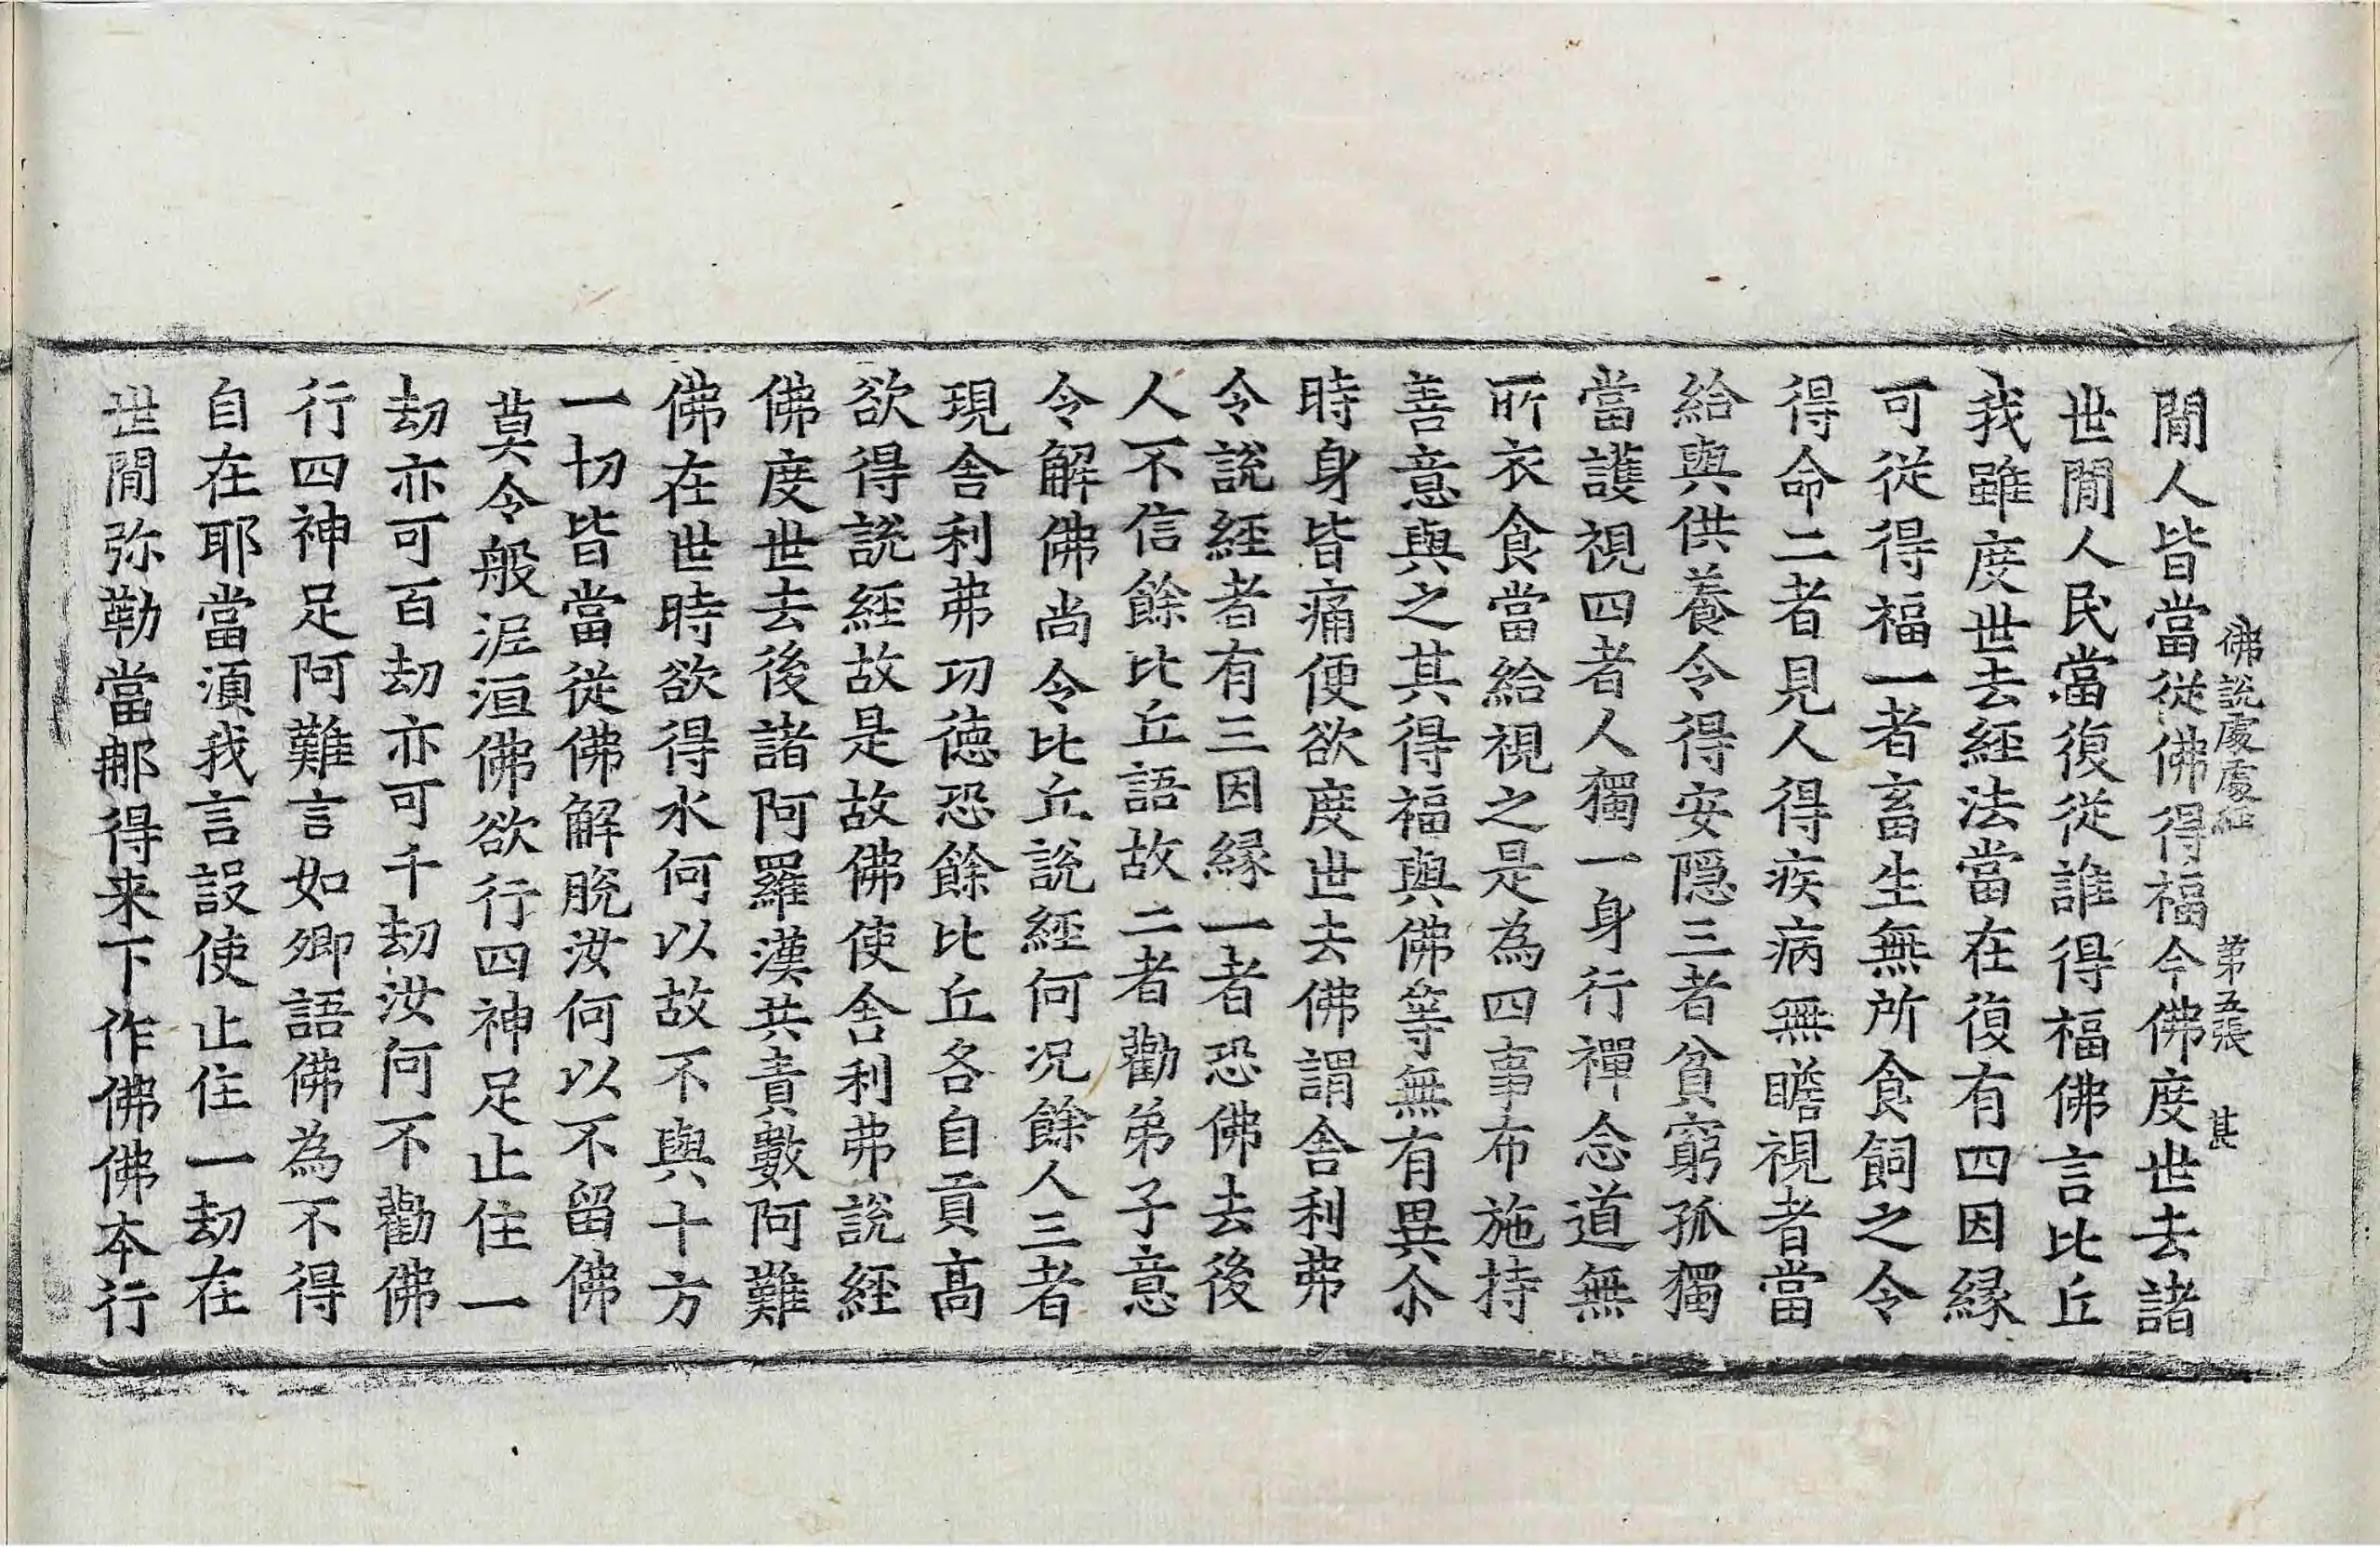 佛說處處經 第五張 甚
閒人皆當從佛得福今佛度世去諸
世閒人民當復從誰得福佛言比丘
我雖度世去經法當在復有四因緣
可從得福一者畜生無所食飼之令
得命二者見人得疾病無瞻視者當
給與供養令得安隱三者貧窮孤獨
當護視四者人獨一身行禪念道無
所衣食當給視之是為四事布施持
善意與之其得福與佛等無有異尒
時身皆痛便欲度世去佛謂舍利弗
令說經者有三因緣一者恐佛去後
人不信餘比丘語故二者勸弟子意
令解佛尚令比丘說經何況餘人三者
現舍利弗功德恐餘比丘各自貢高
欲得說經故是故佛使舍利弗說經
佛度世去後諸阿羅漢共責數阿難
佛在世時欲得水何以故不與十方
一切皆當從佛解脫汝何以不留佛
莫令般泥洹佛欲行四神足止住一
劫亦可百劫亦可千劫汝何不勸佛
行四神足阿難言如卿語佛為不得
自在耶當須我言設使止住一劫在
世閒弥勒當那得来下作佛佛本行